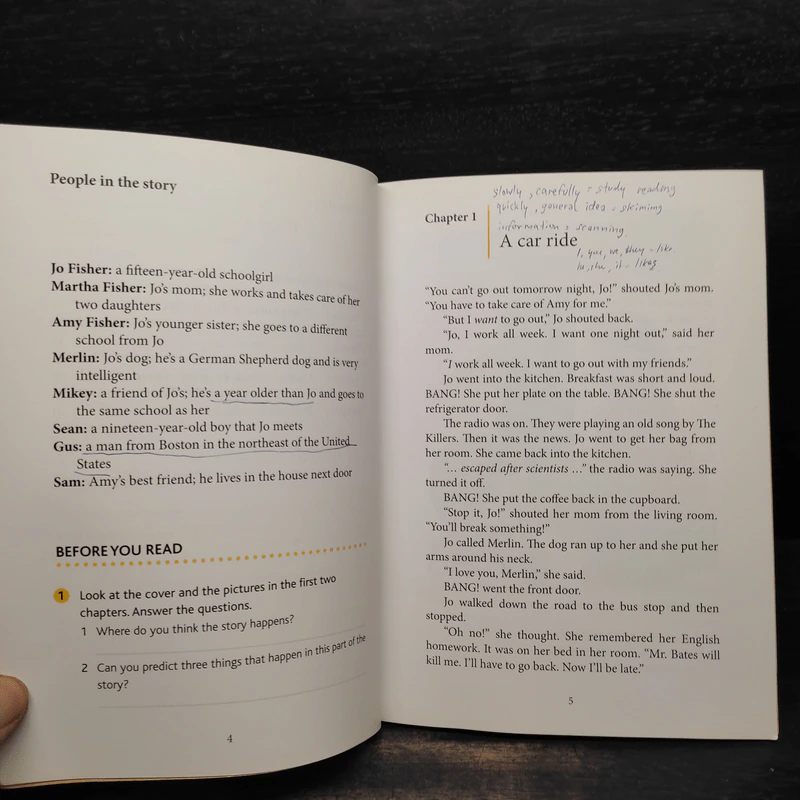 People in the story
Jo Fisher: a fifteen-year-old schoolgirl
Martha Fisher: Jo's mom; she works and takes care of her
two daughters
Amy Fisher: Jo's younger sister; she goes to a different
school from Jo
Merlin: Jo's dog; he's a German Shepherd dog and is very
intelligent
Mikey: a friend of Jo's; he's a year older than Jo and goes to
the same school as her
Sean: a nineteen-year-old boy that Jo meets
Gus: a man from Boston in the northeast of the United
States
Sam: Amy's best friend; he lives in the house next door
BEFORE YOU READ
1 Look at the cover and the pictures in the first two
chapters. Answer the questions.
1 Where do you think the story happens?
2 Can you predict three things that happen in this part of the
story?
4
slowly, carefully = study reading
quickly, general idea = skiming
information = scanning
Chapter 1
A car ride
I, you, we, they - like
he, she, it - likes
“You can't go out tomorrow night, Jo!” shouted Jo's mom.
“You have to take care of Amy for me.”
“But I want to go out,” Jo shouted back.
“Jo, I work all week. I want one night out,” said her
mom.
“I work all week. I want to go out with my friends.”
Jo went into the kitchen. Breakfast was short and loud.
BANG! She put her plate on the table. BANG! She shut the
refrigerator door.
The radio was on. They were playing an old song by The
Killers. Then it was the news. Jo went to get her bag from
her room. She came back into the kitchen.
“… escaped after scientists …” the radio was saying. She
turned it off.
BANG! She put the coffee back in the cupboard.
“Stop it, Jo!” shouted her mom from the living room.
“You'll break something!”
Jo called Merlin. The dog ran up to her and she put her
arms around his neck.
“I love you, Merlin,” she said.
BANG! went the front door.
Jo walked down the road to the bus stop and then
stopped.
“Oh no!” she thought. She remembered her English
homework. It was on her bed in her room. “Mr. Bates will
kill me. I'll have to go back. Now I'll be late.”
5